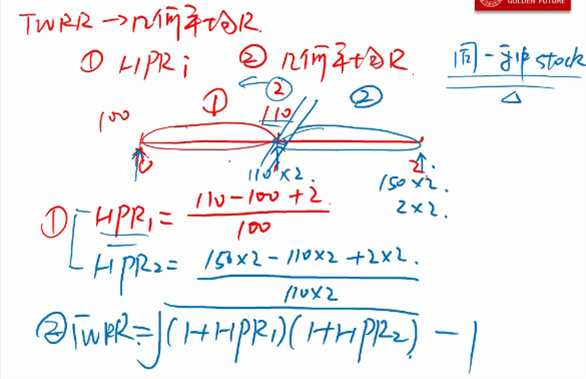 TWRR → 几何平均R.
① HPRi ② 几何平均R.
同一种stock
① ② ②
100 110
0 2
110×2. 150×2.
2×2.
① HPR₁ = (110-100+2)/100
HPR₂ = (150×2-110×2+2×2.)/(110×2)
② TWRR = √((1+HPR₁)(1+HPR₂)) - 1
GOLDEN FUTURE